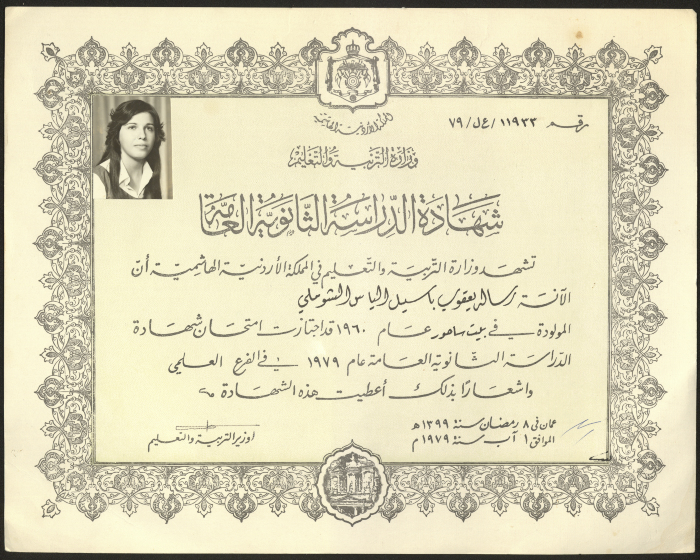 المملكة الأردنية الهاشمية
رقم ١١٩٣٣ / ع ل / ٧٩
وزارة التربية والتعليم
شهادة الدراسة الثانوية العامة
تشهد وزارة التربية والتعليم في المملكة الأردنية الهاشمية أن
الآنسة رساله يعقوب باسيل الياس الشوملي
المولودة في بيت ساحور عام ١٩٦٠ قد اجتازت امتحان شهادة
الدراسة الثانوية العامة عام ١٩٧٩ في الفرع العلمي
واشعارًا بذلك أعطيت هذه الشهادة
عمان في ٨ رمضان سنة ١٣٩٩ هـ
الموافق ١ آب سنة ١٩٧٩ م
وزير التربية والتعليم